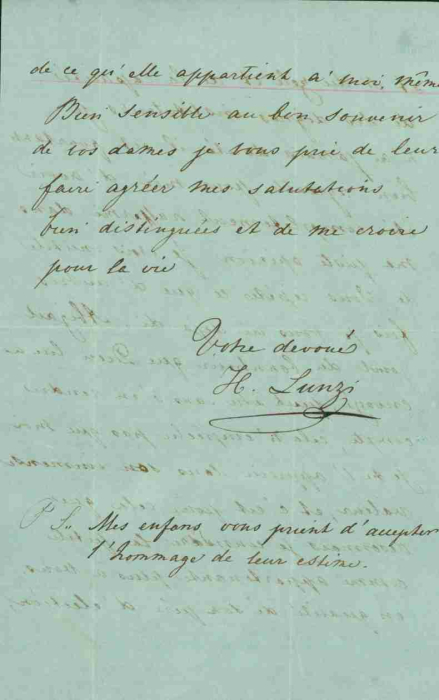 de ce qu'elle appartient à moi, même
Bien sensible au bon souvenir
de vos dames je vous prie de leur
faire agréer mes salutations
bien distinguées et de me croire
pour la vie
Votre devoué
H. Lunzi
P S. Mes enfans vous prient d'accepter
l'hommage de leur estime.